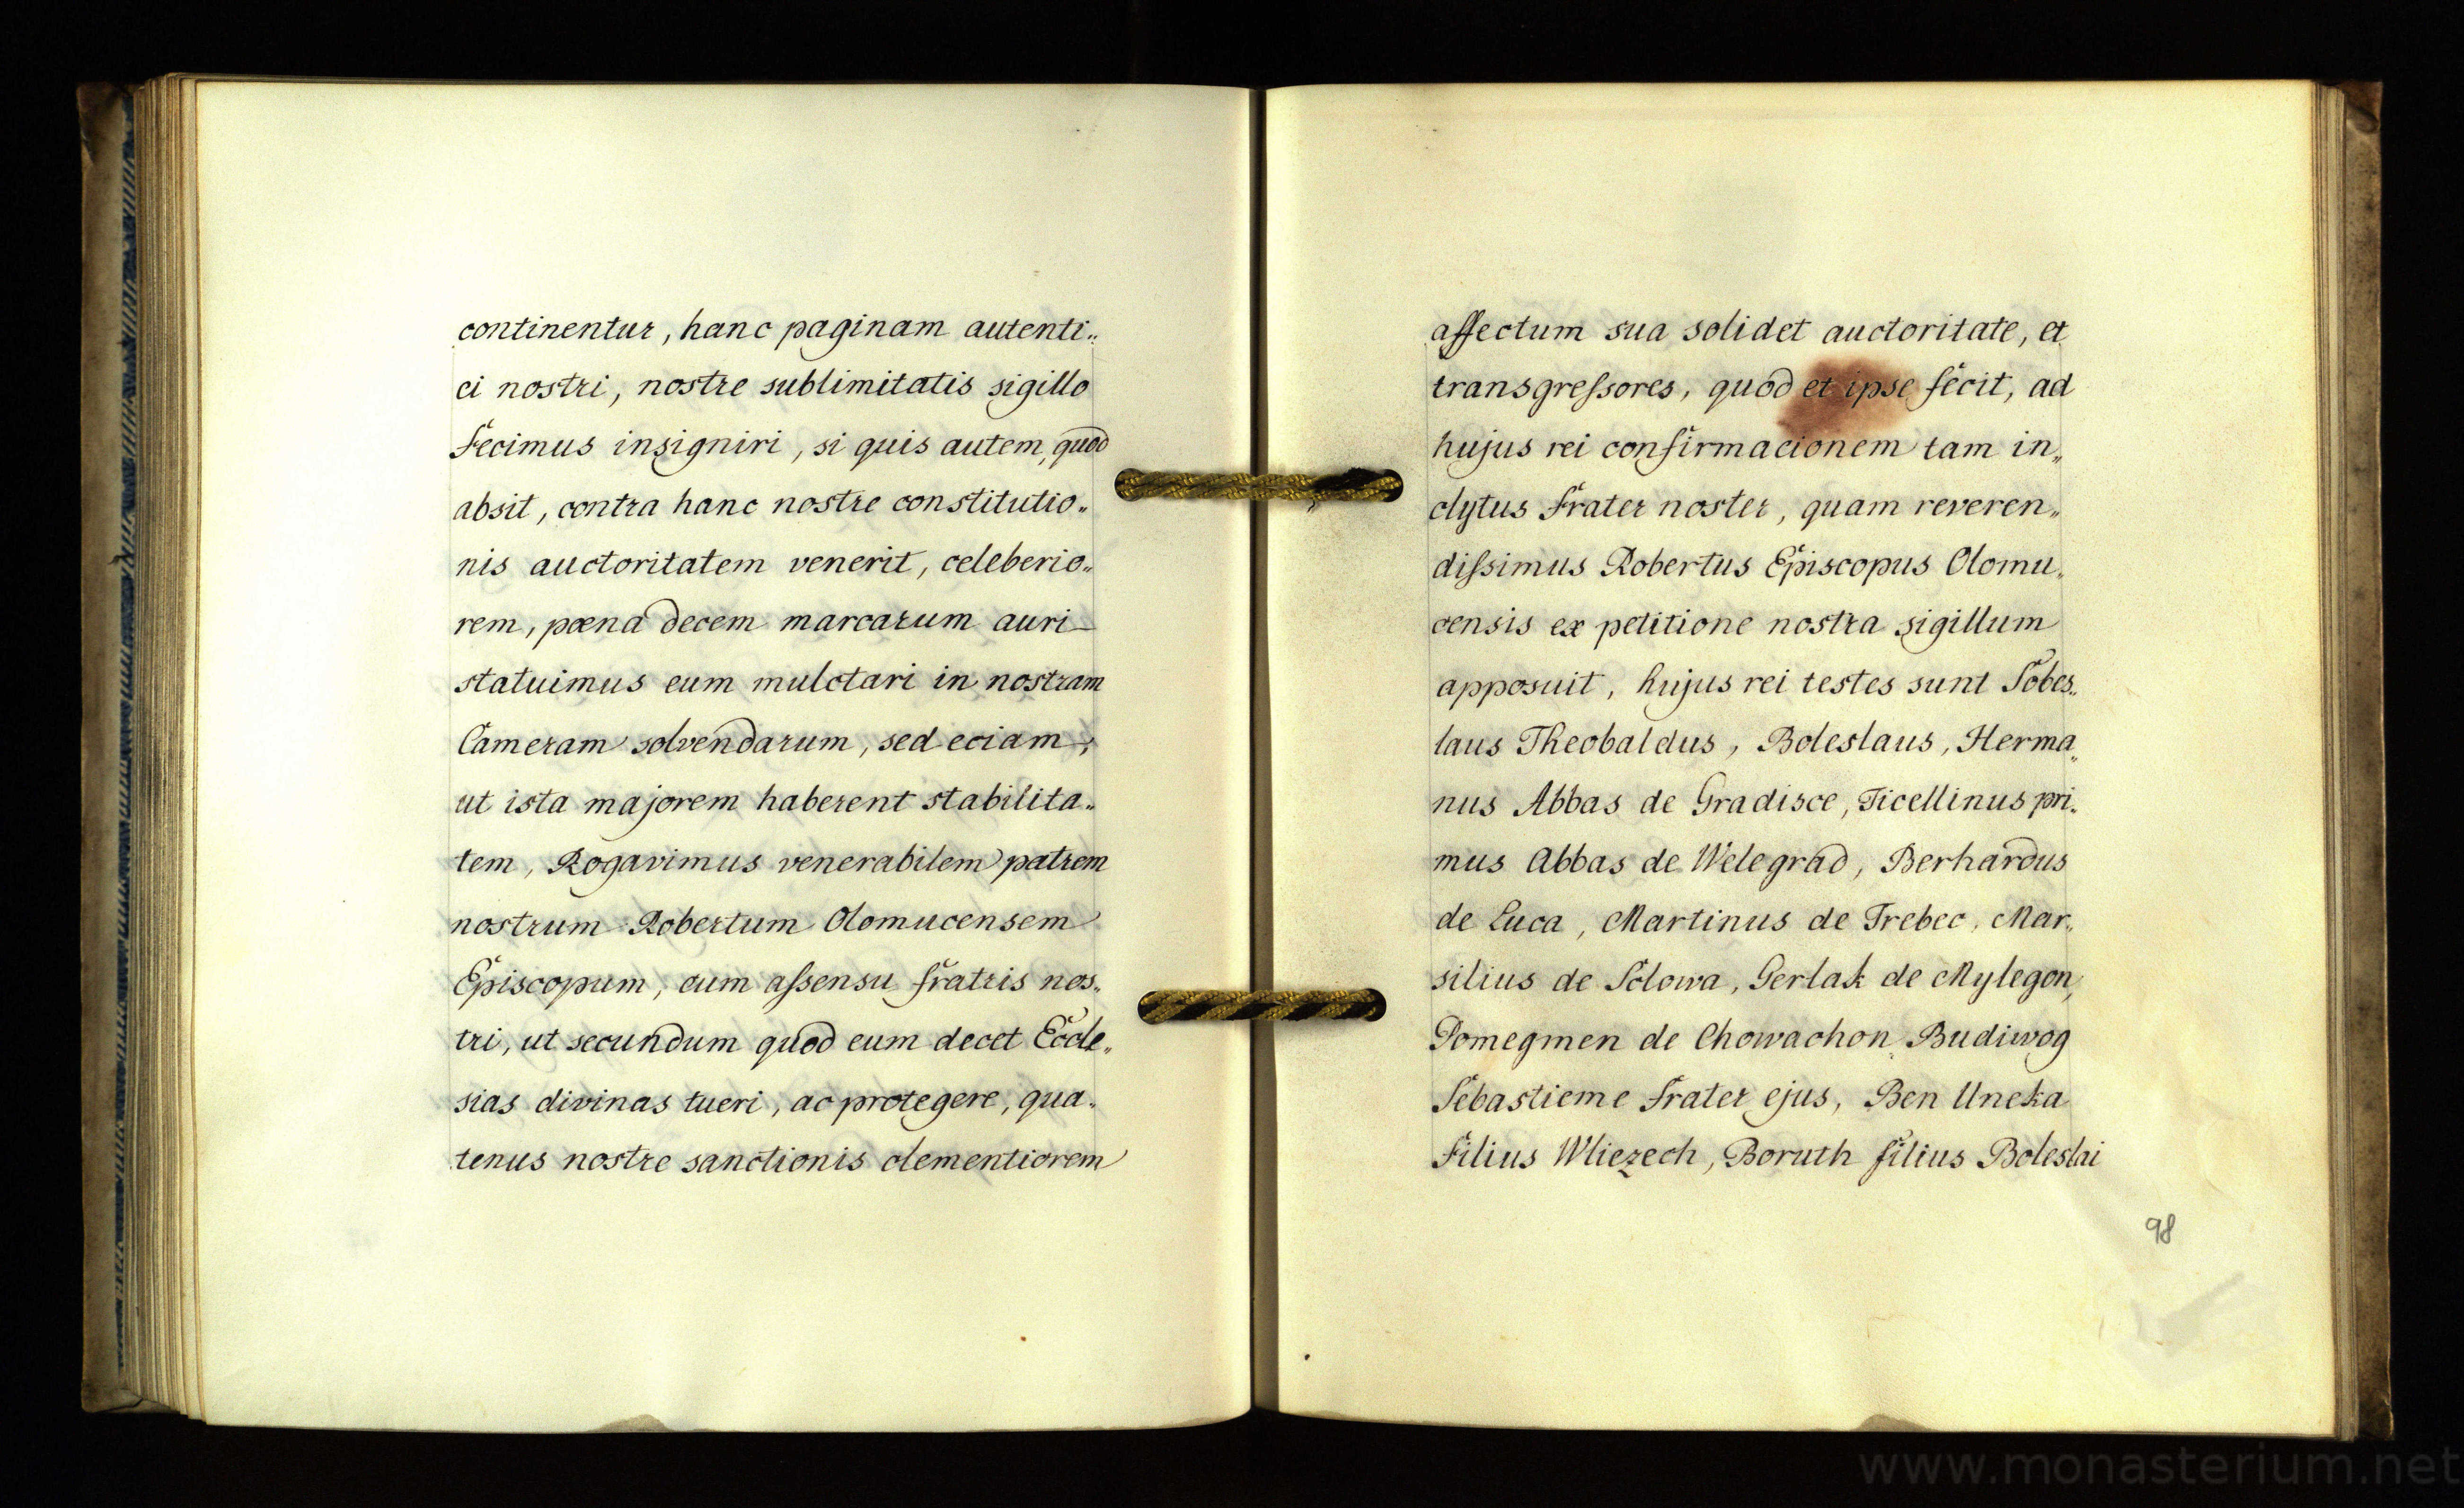 continentur, hanc paginam autenti„
ci nostri, nostre sublimitatis sigillo
fecimus insigniri, si quis autem, quod
absit, contra hanc nostre constitutio„
nis auctoritatem venerit, celeberio„
rem, pœna decem marcarum auri
statuimus eum mulctari in nostram
Cameram solvendarum, sed eciam,
ut ista majorem haberent stabilita„
tem, Rogavimus venerabilem patrem
nostrum Robertum Olomucensem
Episcopum, cum aſsensu fratris nos„
tri, ut secundum quod eum decet Eccle„
sias divinas tueri, ac protegere, qua„
tenus nostre sanctionis clementiorem
affectum sua solidet auctoritate, et
transgreſsores, quod et ipse fecit, ad
hujus rei confirmacionem tam in„
clytus Frater noster, quam reveren„
diſsimus Robertus Episcopus Olomu„
censis ex petitione nostra sigillum
apposuit, hujus rei testes sunt Sobes„
laus Theobaldus, Boleslaus, Herma„
nus Abbas de Gradisce, Ticellinus pri„
mus Abbas de Welegrad, Berhardus
de Luca, Martinus de Trebec, Mar„
silius de Solowa, Gerlak de Mylegon,
Pomegmen de Chowachon Budiwog
Sebastieme Frater ejus, Ben Uneka
Filius Wliezech, Boruth filius Boleslai
98
www.monasterium.net